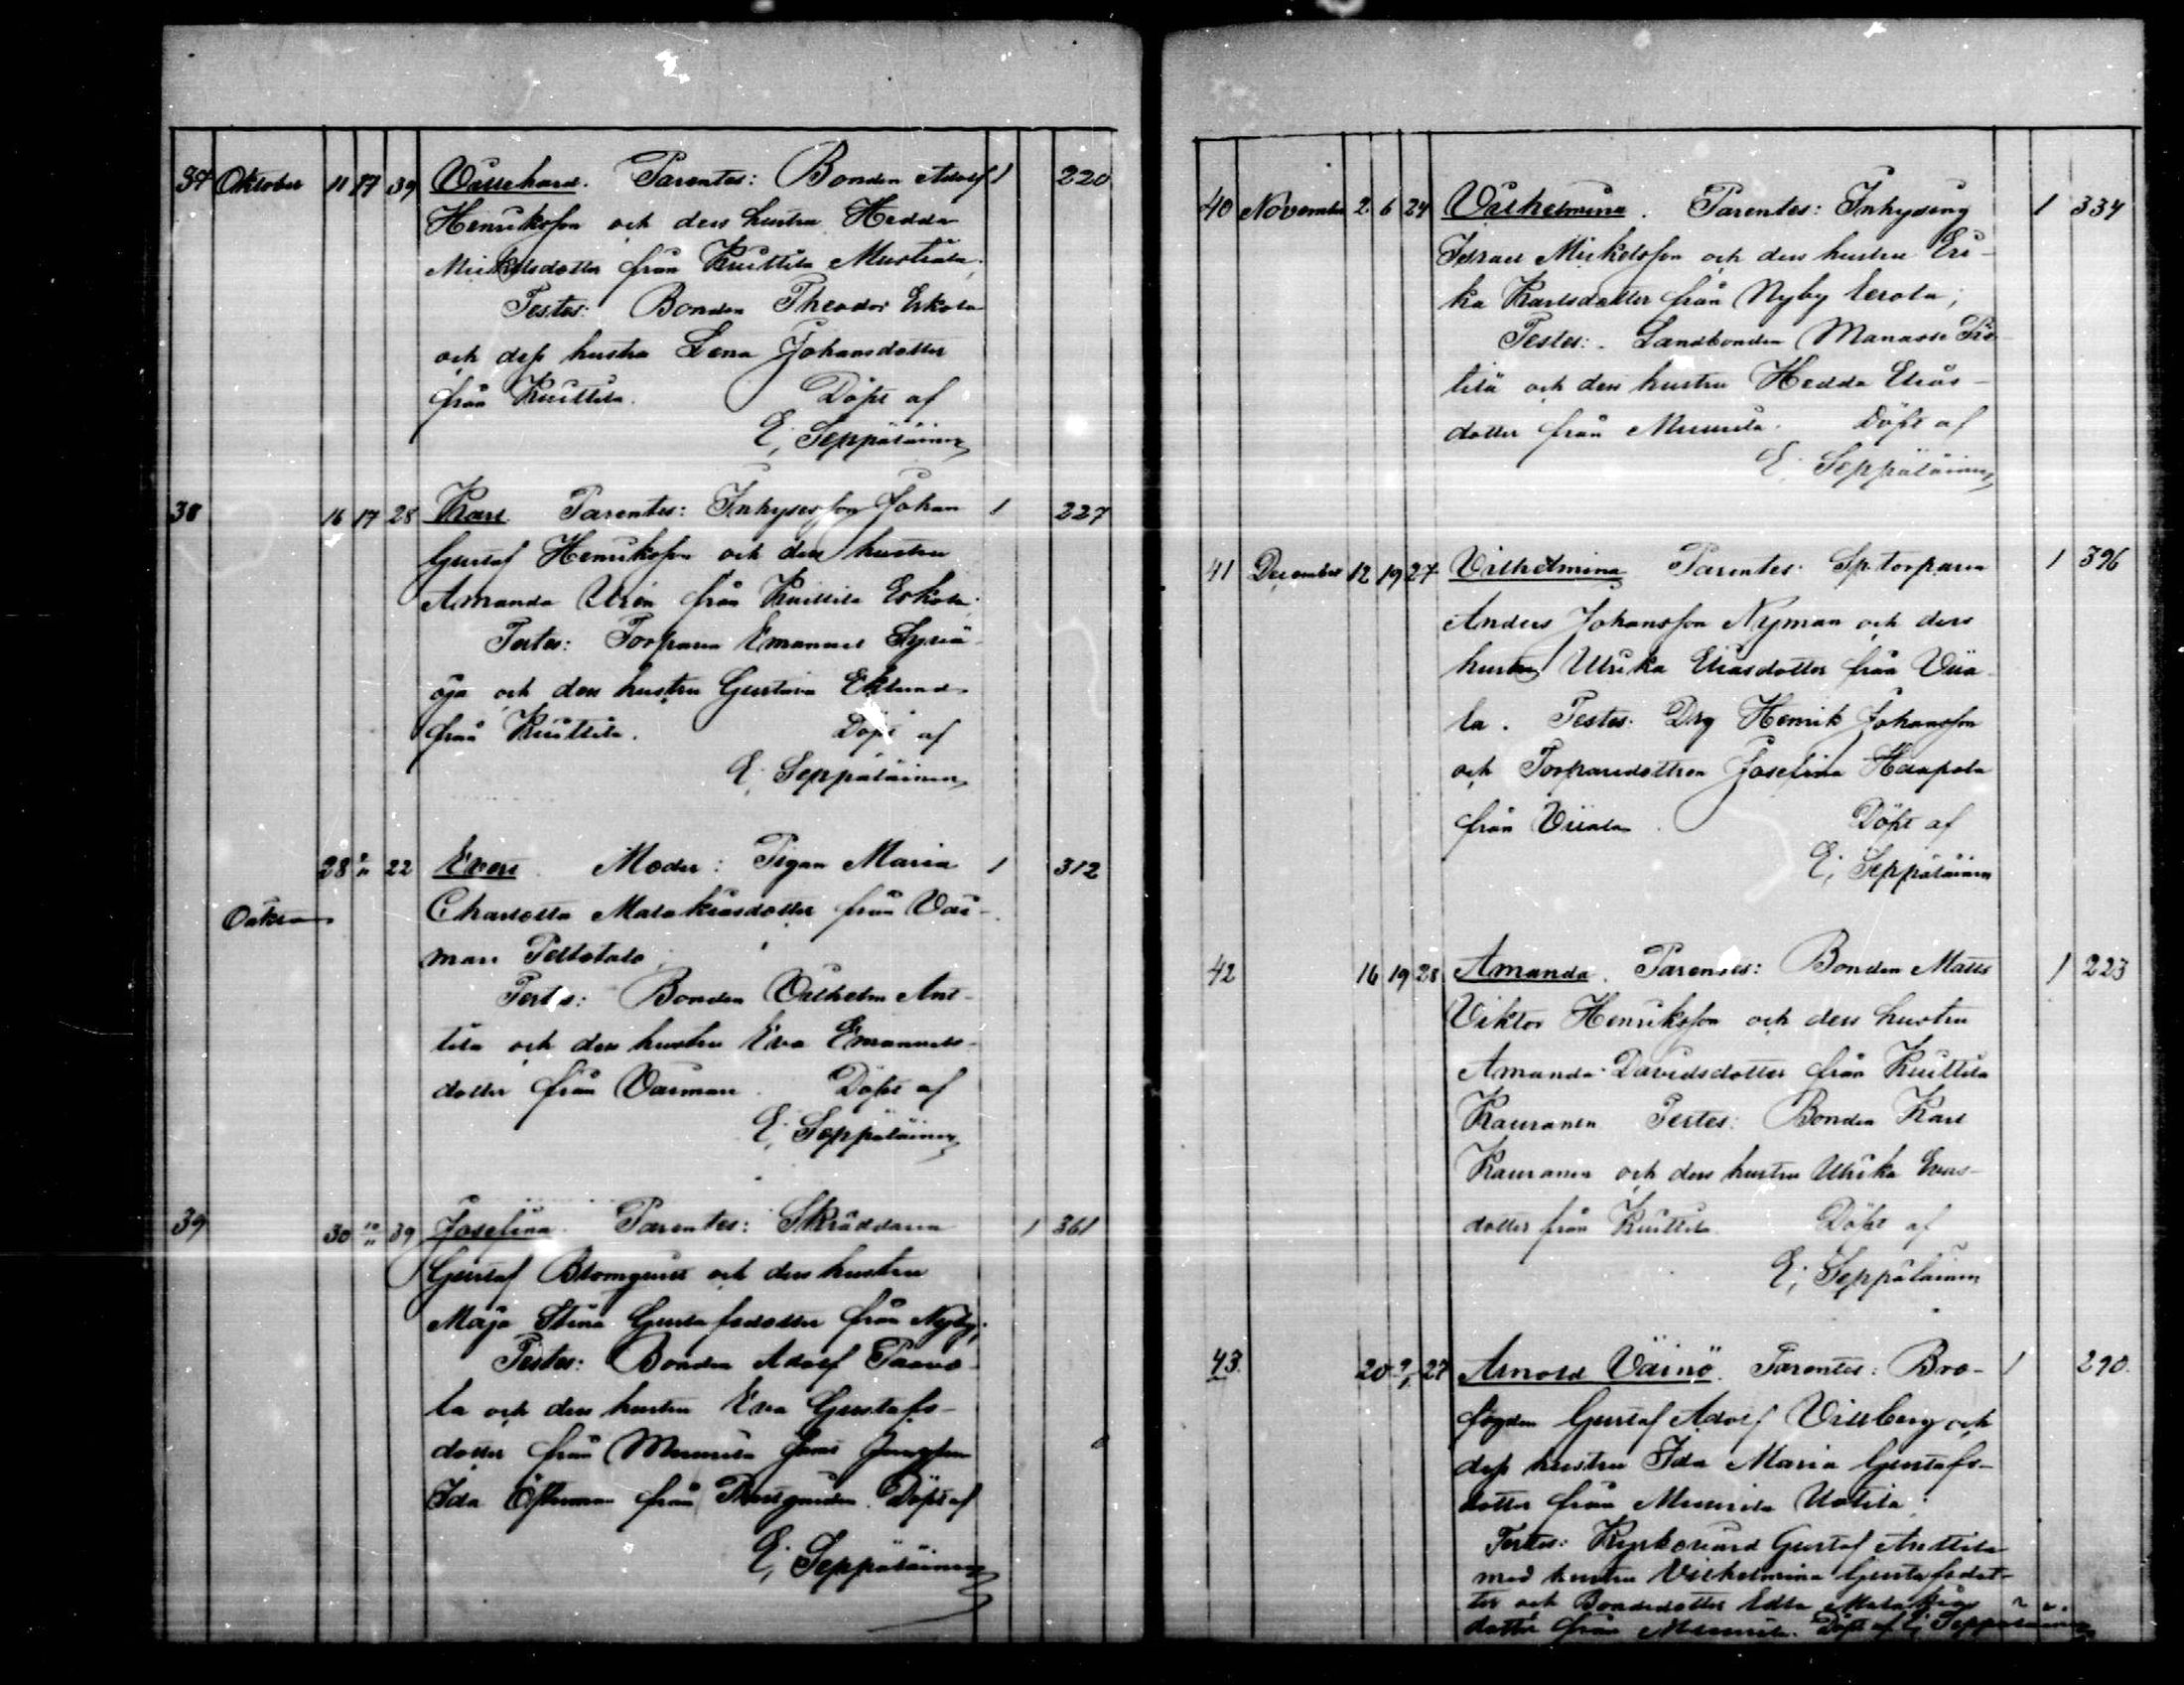 37 Oktober 11 17 39 Villehard. Parentes: Bonden Adolf 1 220
Henriksson och dess hustru Hedda
Mickelsdotter från Kuittila Mustiala.
Testes: Bonden Theodor Erkola
och dess hustru Lena Johansdotter
från Kuittila. Döpt af
E. Seppäläinen
38 16 17 28 Karl. Parentes: Inhysesson Johan 1 227
Gustaf Henriksson och dess hustru
Amanda från Kuittila Erkola.
Testes: Torparen Emanuel Syriä-
oja och dess hustru Gustava Eklund
från Kuittila. Döpt af
E. Seppäläinen
28 2/11 22 Evert. Moder: Pigan Maria 1 312
Oäkta Charlotta Malakiasdotter från Vai-
mari Peltotalo.
Testes: Bonden Vilhelm Ant-
tila och dess hustru Eva Emanuels-
dotter från Vaimari. Döpt af
E. Seppäläinen
39 30 10/11 39 Josefina. Parentes: Skräddaren 1 361
Gustaf Blomquist och dess hustru
Maja Stina Gustafsdotter från Nyby.
Testes: Bonden Adolf Paavo-
la och dess hustru Eva Gustafs-
dotter från Munnila Jungfrun
Ida Öhman från Prestgården. Döpt af
E. Seppäläinen
40 November 2 6 24 Vilhelmina. Parentes: Inhysing 1 334
Israel Mickelsson och dess hustru Eri-
ka Karlsdotter från Nyby Eerola;
Testes: Landbonden Manasse
och dess hustru Hedda Elias-
dotter från Munnila. Döpt af
E. Seppäläinen
41 December 12 19 27 Vilhelmina Parentes: Sp. torparen 1 396
Anders Johansson Nyman och dess
hustru Ulrika Eliasdotter från Viia-
la. Testes: Drg Henrik Johansson
och Torparedottren Josefina Haapala
från Viiala. Döpt af
E. Seppäläinen
42 16 19 28 Amanda. Parentes: Bonden Matts 1 223
Viktor Henriksson och dess hustru
Amanda Davidsdotter från Kuittila
Kauranen Testes: Bonden Karl
Kauranen och dess hustru Ulrika Evers-
dotter från Kuittila. Döpt af
E. Seppäläinen
43. 20 27 Arnold Väinö. Parentes: Bro- 1 290.
fogden Gustaf Adolf Villberg och
dess hustru Ida Maria Gustafs-
dotter från Munnila Uotila.
Testes: Kyrkovärd Gustaf Anttila
med hustru Vilhelmina Gustafsdot-
ter och Bondedotter Edla Malakias
dotter från Munnila. Döpt af E. Seppäläinen